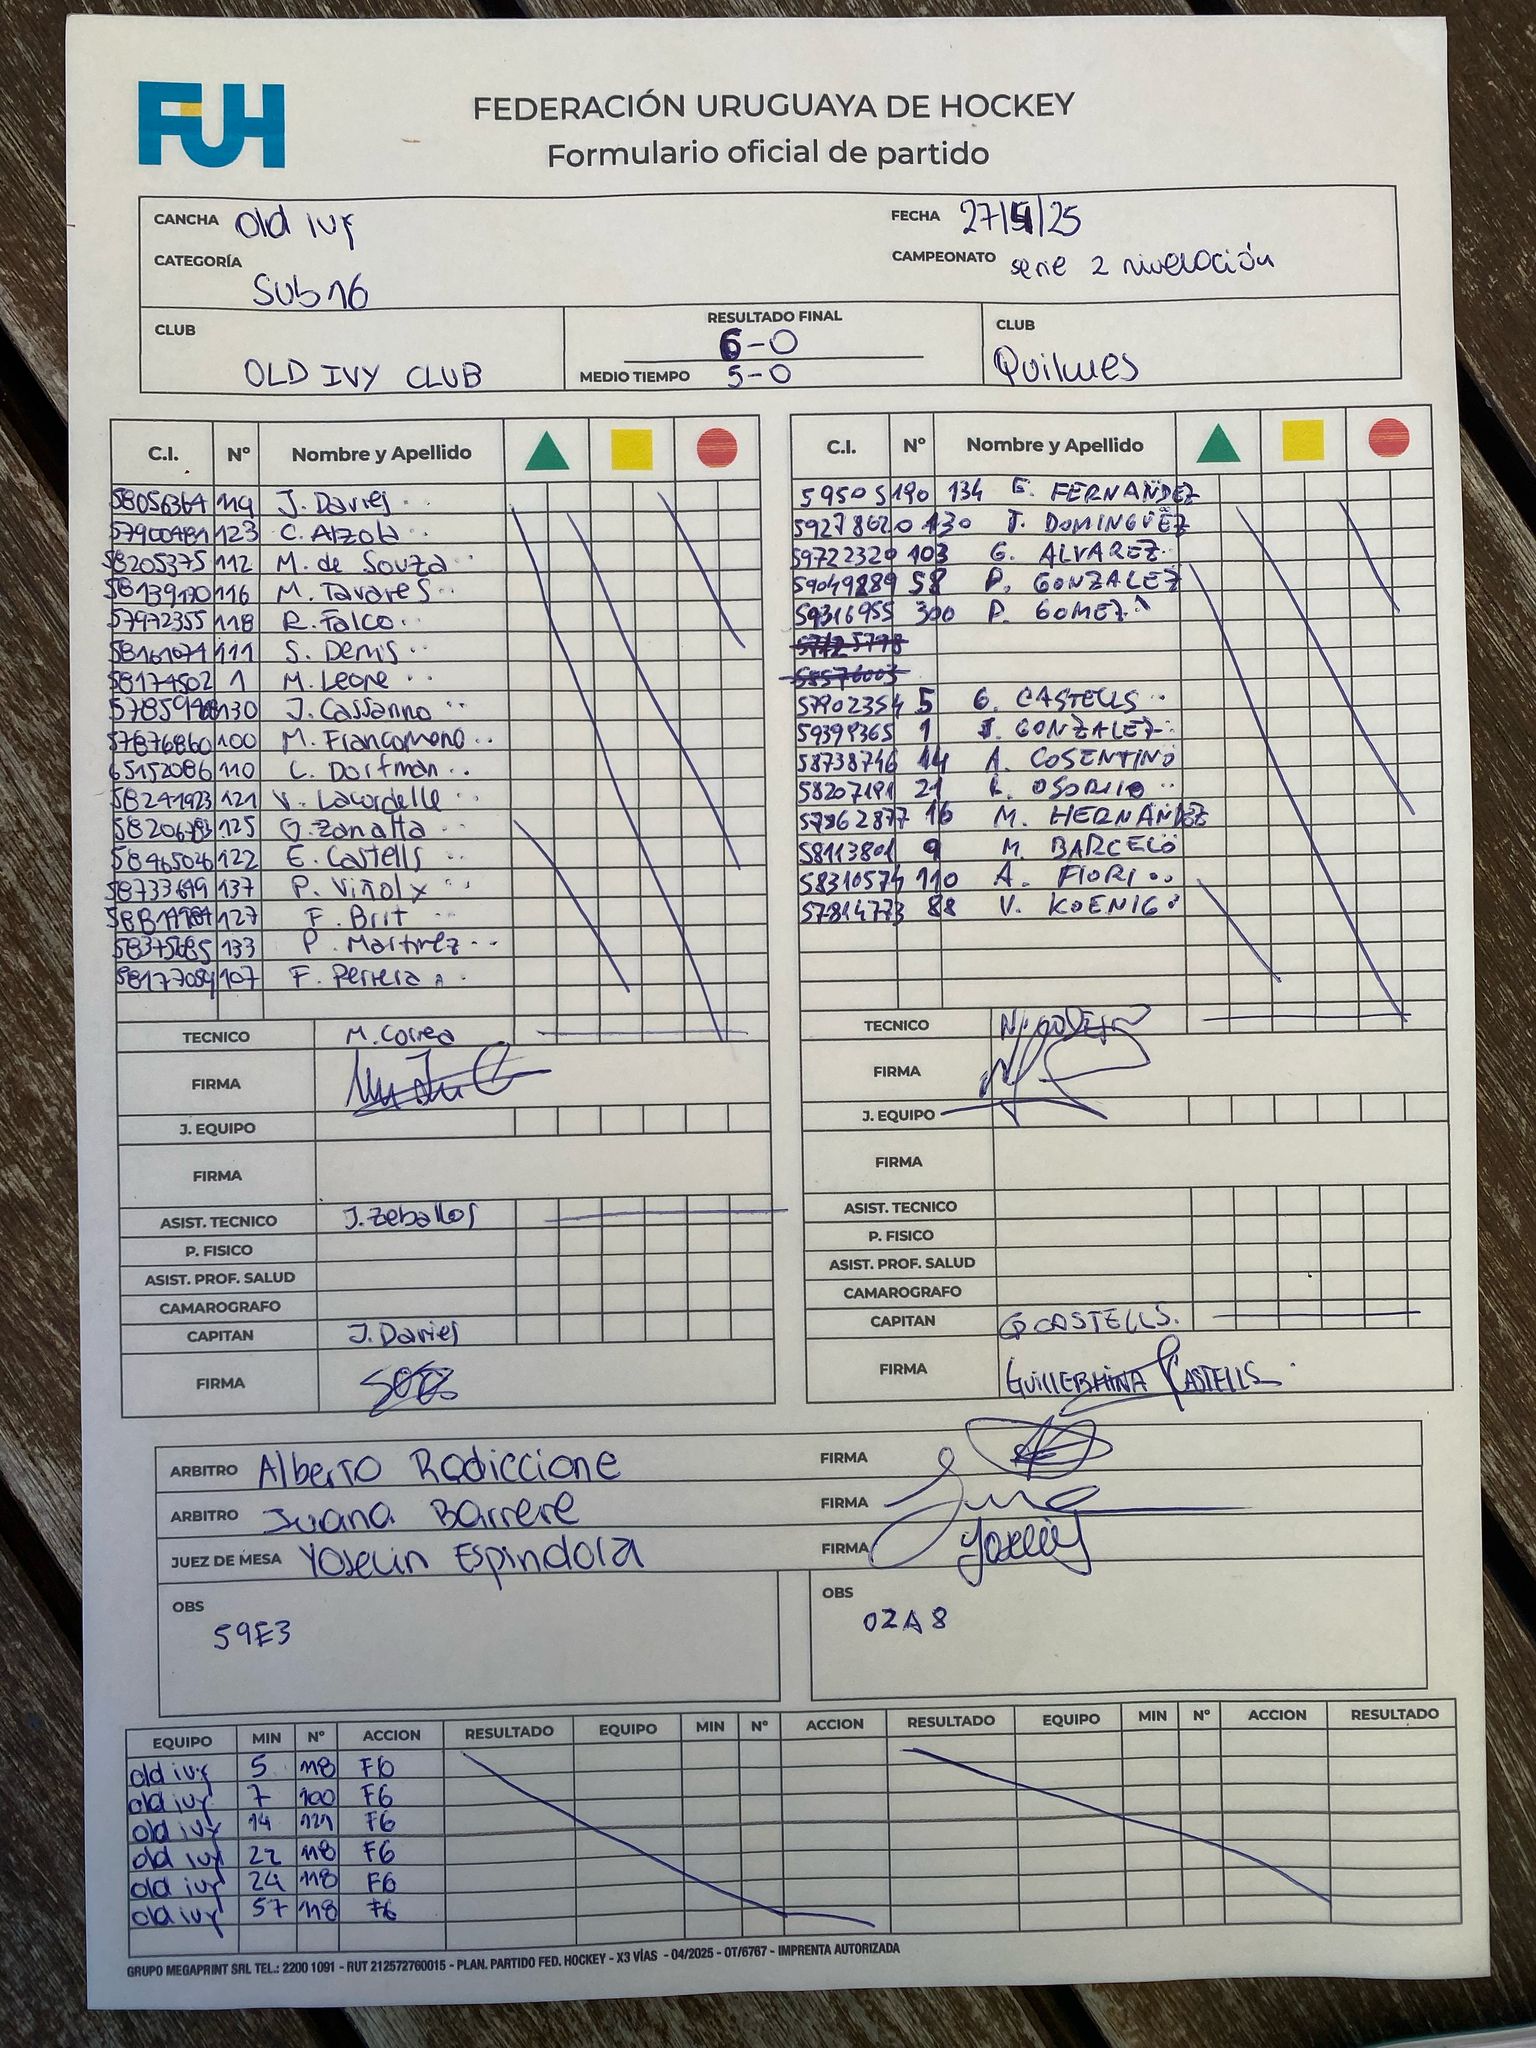 FUH
FEDERACIÓN URUGUAYA DE HOCKEY
Formulario oficial de partido
CANCHA Old ivy
FECHA 27/4/25
CATEGORÍA Sub 16
CAMPEONATO serie 2 nivelación
CLUB OLD IVY CLUB
RESULTADO FINAL 6-0
MEDIO TIEMPO 5-0
CLUB Quilmes
C.I. Nº Nombre y Apellido
58056364 114 J. Davies
57900481 123 C. Arzola
58205375 112 M. de Souza
58139170 116 M. Tavares
57972355 118 R. Falco
58161071 111 S. Denis
58174502 1 M. Leone
130 J. Cassanno
57876860 100 M. Francomano
65152086 110 C. Dorfman
58241923 121 V. Lacordelle
125 G. Zanatta
58465026 122 E. Castells
58733699 137 P. Viñoly
127 F. Brit
133 P. Martinez
107 F. Perrera
TECNICO M. Correa
FIRMA
J. EQUIPO
FIRMA
ASIST. TECNICO J. Zeballos
P. FISICO
ASIST. PROF. SALUD
CAMAROGRAFO
CAPITAN J. Davies
FIRMA
C.I. Nº Nombre y Apellido
59505190 134 E. FERNANDEZ
59278620 130 J. DOMINGUEZ
59722320 103 G. ALVAREZ
59049889 58 P. GONZALEZ
59316955 300 P. GOMEZ
57902354 5 G. CASTELLS
59398365 1 J. GONZALEZ
58738746 14 A. COSENTINO
58207191 21 L. OSORIO
57862877 16 M. HERNANDEZ
58113801 9 M. BARCELO
58310574 110 A. FIORI
57814773 88 V. KOENIG
TECNICO
FIRMA
J. EQUIPO
FIRMA
ASIST. TECNICO
P. FISICO
ASIST. PROF. SALUD
CAMAROGRAFO
CAPITAN G CASTELLS.
FIRMA GUILLERMINA CASTELLS
ARBITRO Alberto Radiccione FIRMA
ARBITRO Juana Barrere FIRMA
JUEZ DE MESA Yoselin Espindola FIRMA
OBS 59E3
OBS 02A8
EQUIPO MIN Nº ACCION RESULTADO EQUIPO MIN Nº ACCION RESULTADO EQUIPO MIN Nº ACCION RESULTADO
old ivy 5 118 FG
old ivy 7 100 FG
old ivy 14 121 FG
old ivy 22 118 FG
old ivy 24 118 FG
old ivy 57 118 FG
GRUPO MEGAPRINT SRL TEL.: 2200 1091 - RUT 212572760015 - PLAN. PARTIDO FED. HOCKEY - X3 VÍAS - 04/2025 - OT/6767 - IMPRENTA AUTORIZADA